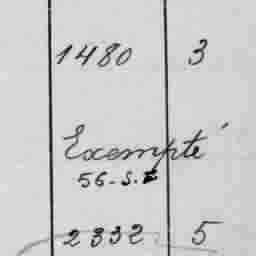 1480 3
Exempté
56-S.E
2332 5